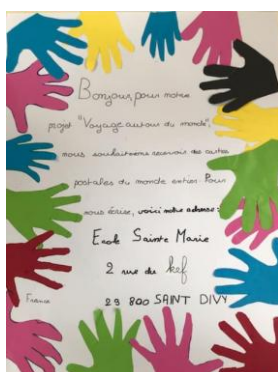 Bonjour, pour notre
projet "Voyage autour du monde",
nous souhaiterions recevoir des cartes
postales du monde entier. Pour
nous écrire, voici notre adresse :
Ecole Sainte Marie
2 rue du kef
29 800 SAINT DIVY
France